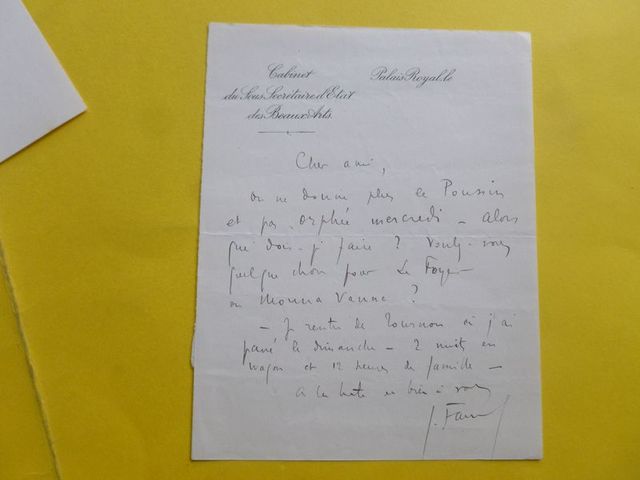 Cabinet
du Sous Secrétaire d'Etat
des Beaux Arts.
Palais Royal, le
Cher ami,
on ne donne plus le Poussin
et pas Orphée mercredi - alors
que dois-je faire ? Voulez-vous
quelque chose pour Le Foyer
ou Monna Vanna ?
- Je rentre de Tournon où j'ai
passé le dimanche - 2 nuits en
wagon et 12 heures de famille -
à la hâte et bien à vous
J.